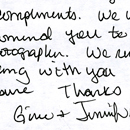 compliments. We w
ommend you to
otographer. We
ing with you
Thanks
Gina + Jennif